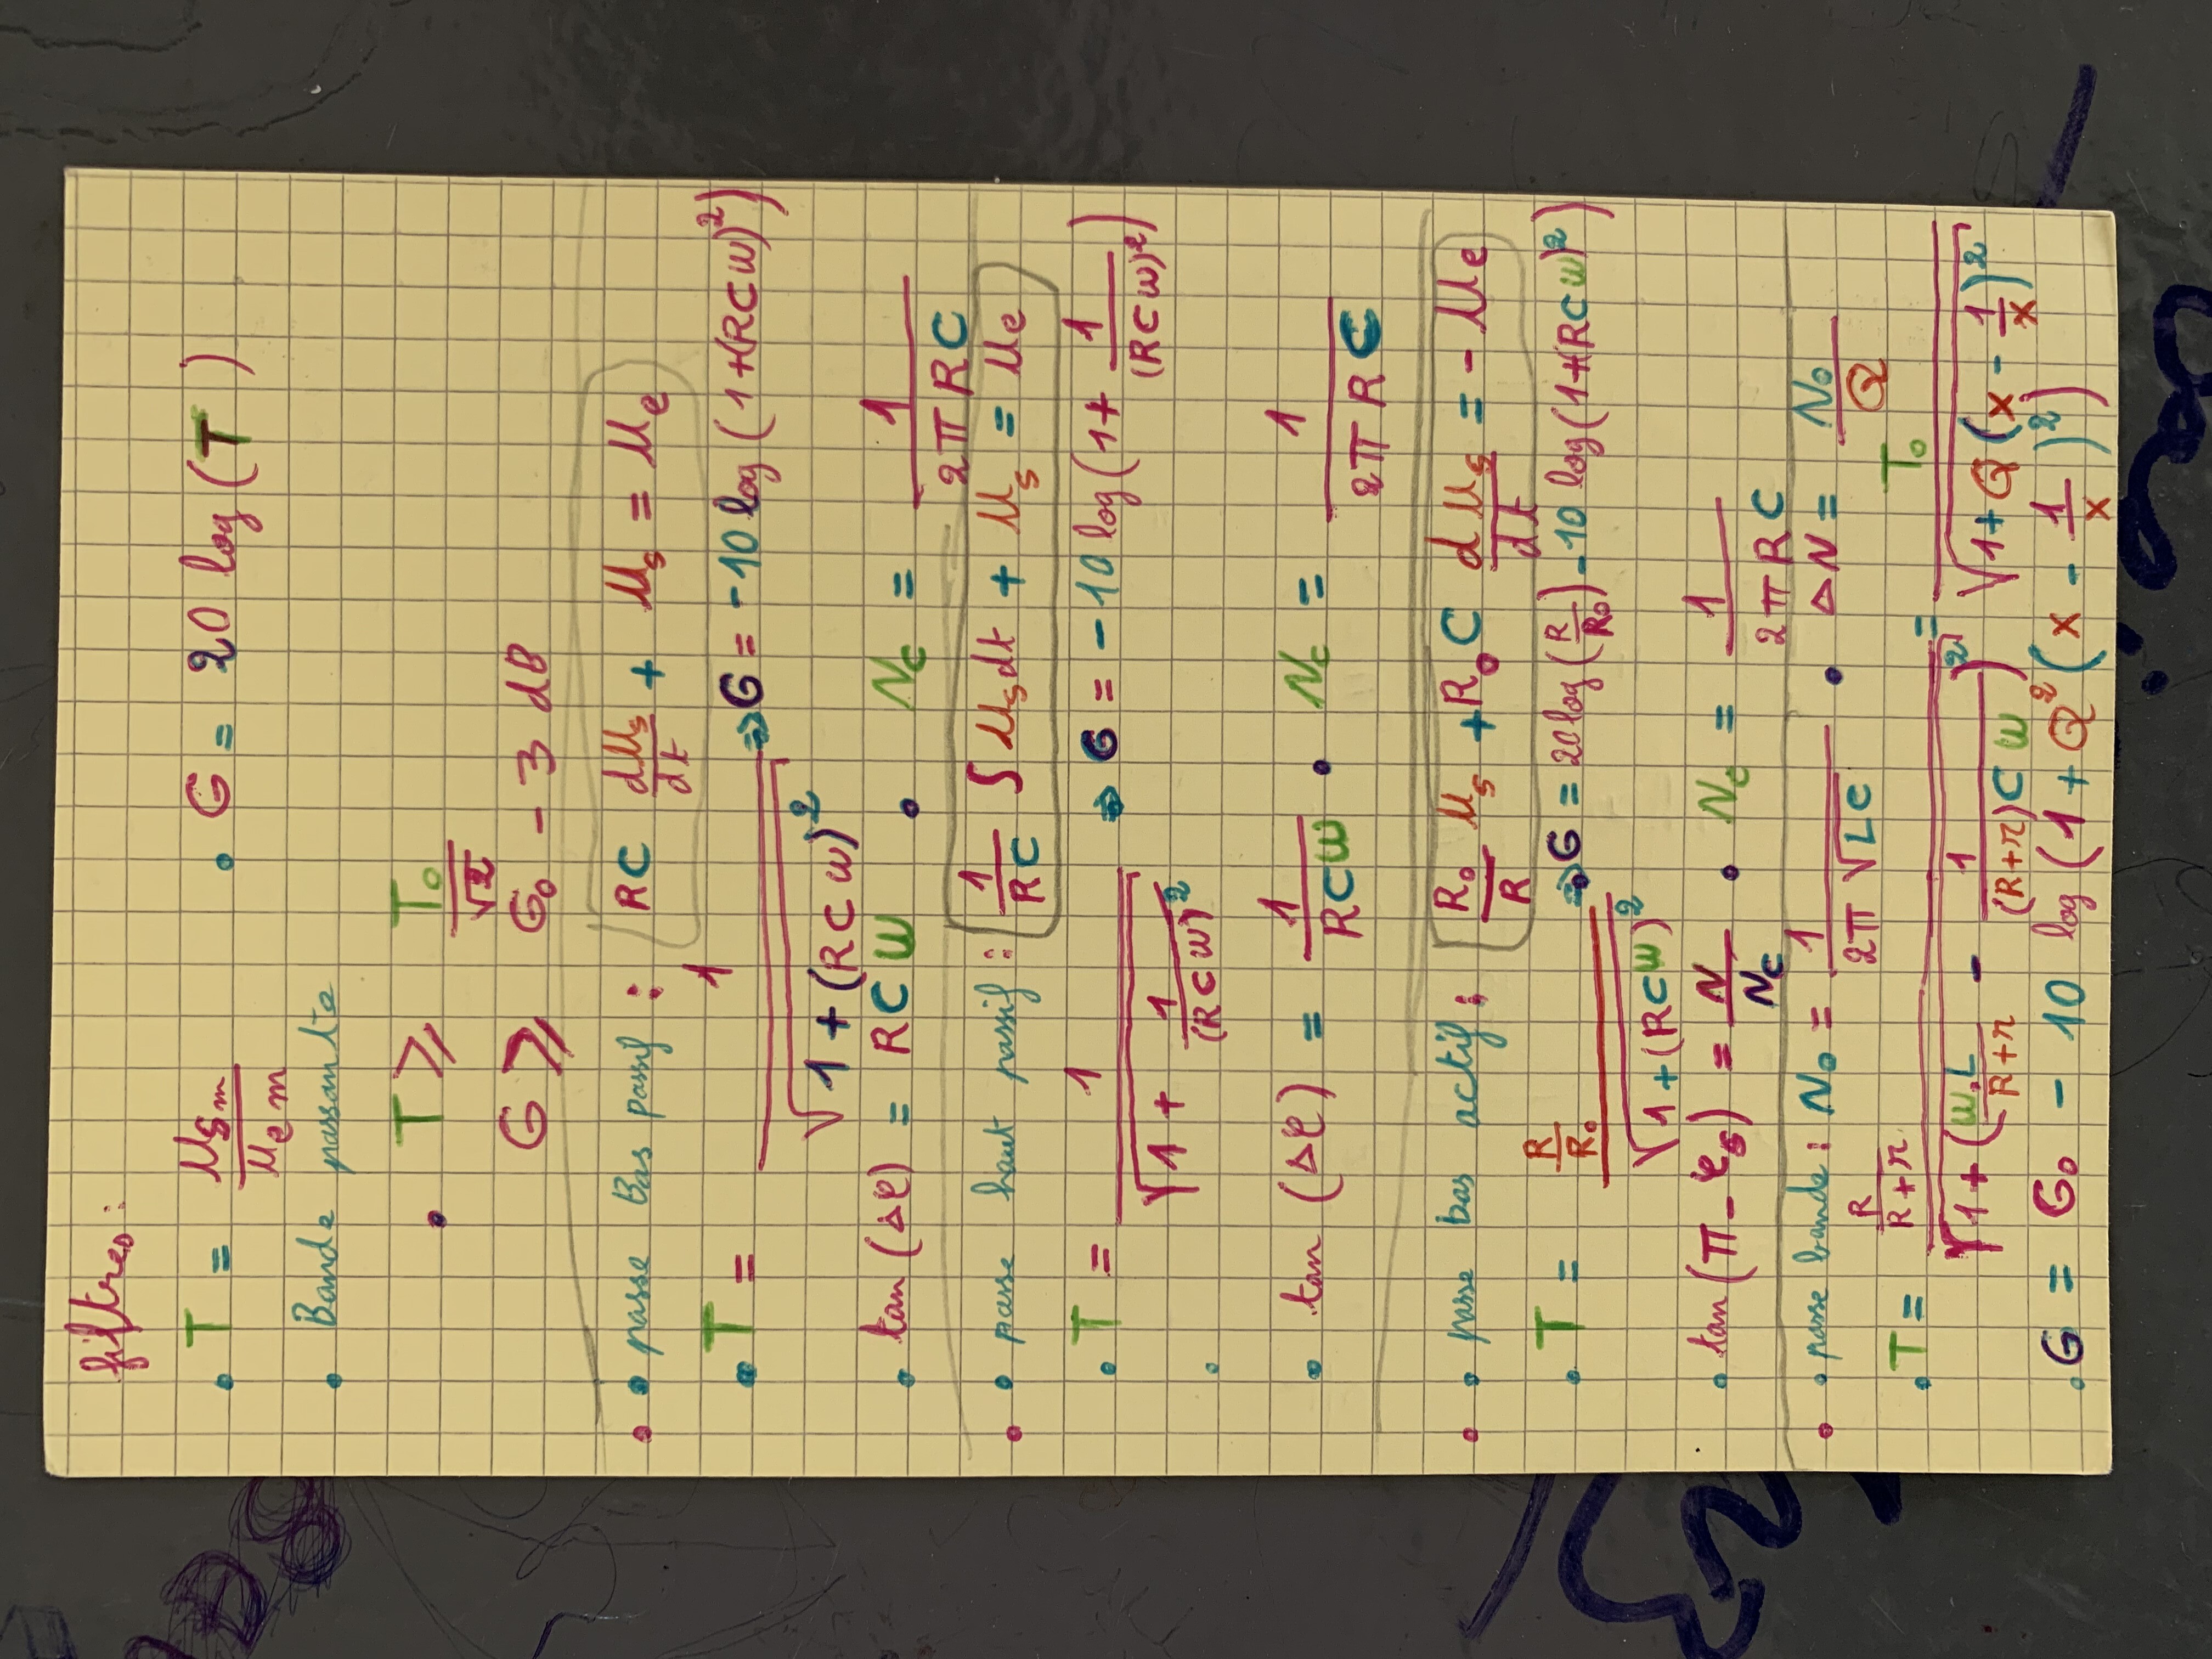 filtres :
• T = Usm / Uem • G = 20 log (T)
• Bande passante
• T ⩾ T₀ / √2
G ⩾ G₀ - 3 dB
• • passe Bas passif : RC dUs/dt + Us = Ue
• T = 1 / √(1 + (RCω)²) ⇒ G = -10 log (1+(RCω)²)
• tan (Δφ) = RCω • Nc = 1 / 2πRC
• • passe haut passif : 1/RC ∫ Us dt + Us = Ue
• T = 1 / √(1 + 1/(RCω)²) ⇒ G = -10 log (1+ 1/(RCω)²)
•
• tan (Δφ) = 1 / RCω • Nc = 1 / 2πRC
• • passe bas actif : R₀/R Us + R₀C dUs/dt = -Ue
• T = R/R₀ / √(1+(RCω)²) ⇒ G = 20log (R/R₀) - 10 log (1+(RCω)²)
• tan (π - φs) = N / Nc • Nc = 1 / 2πRC
• • passe bande : N₀ = 1 / 2π√LC • ΔN = N₀ / Q
• T = R/(R+r) / √(1+(ω.L/(R+r) - 1/((R+r)Cω))²) = T₀ / √(1+Q(x - 1/x)²)
• G = G₀ - 10 log (1 + Q² (x - 1/x)²)